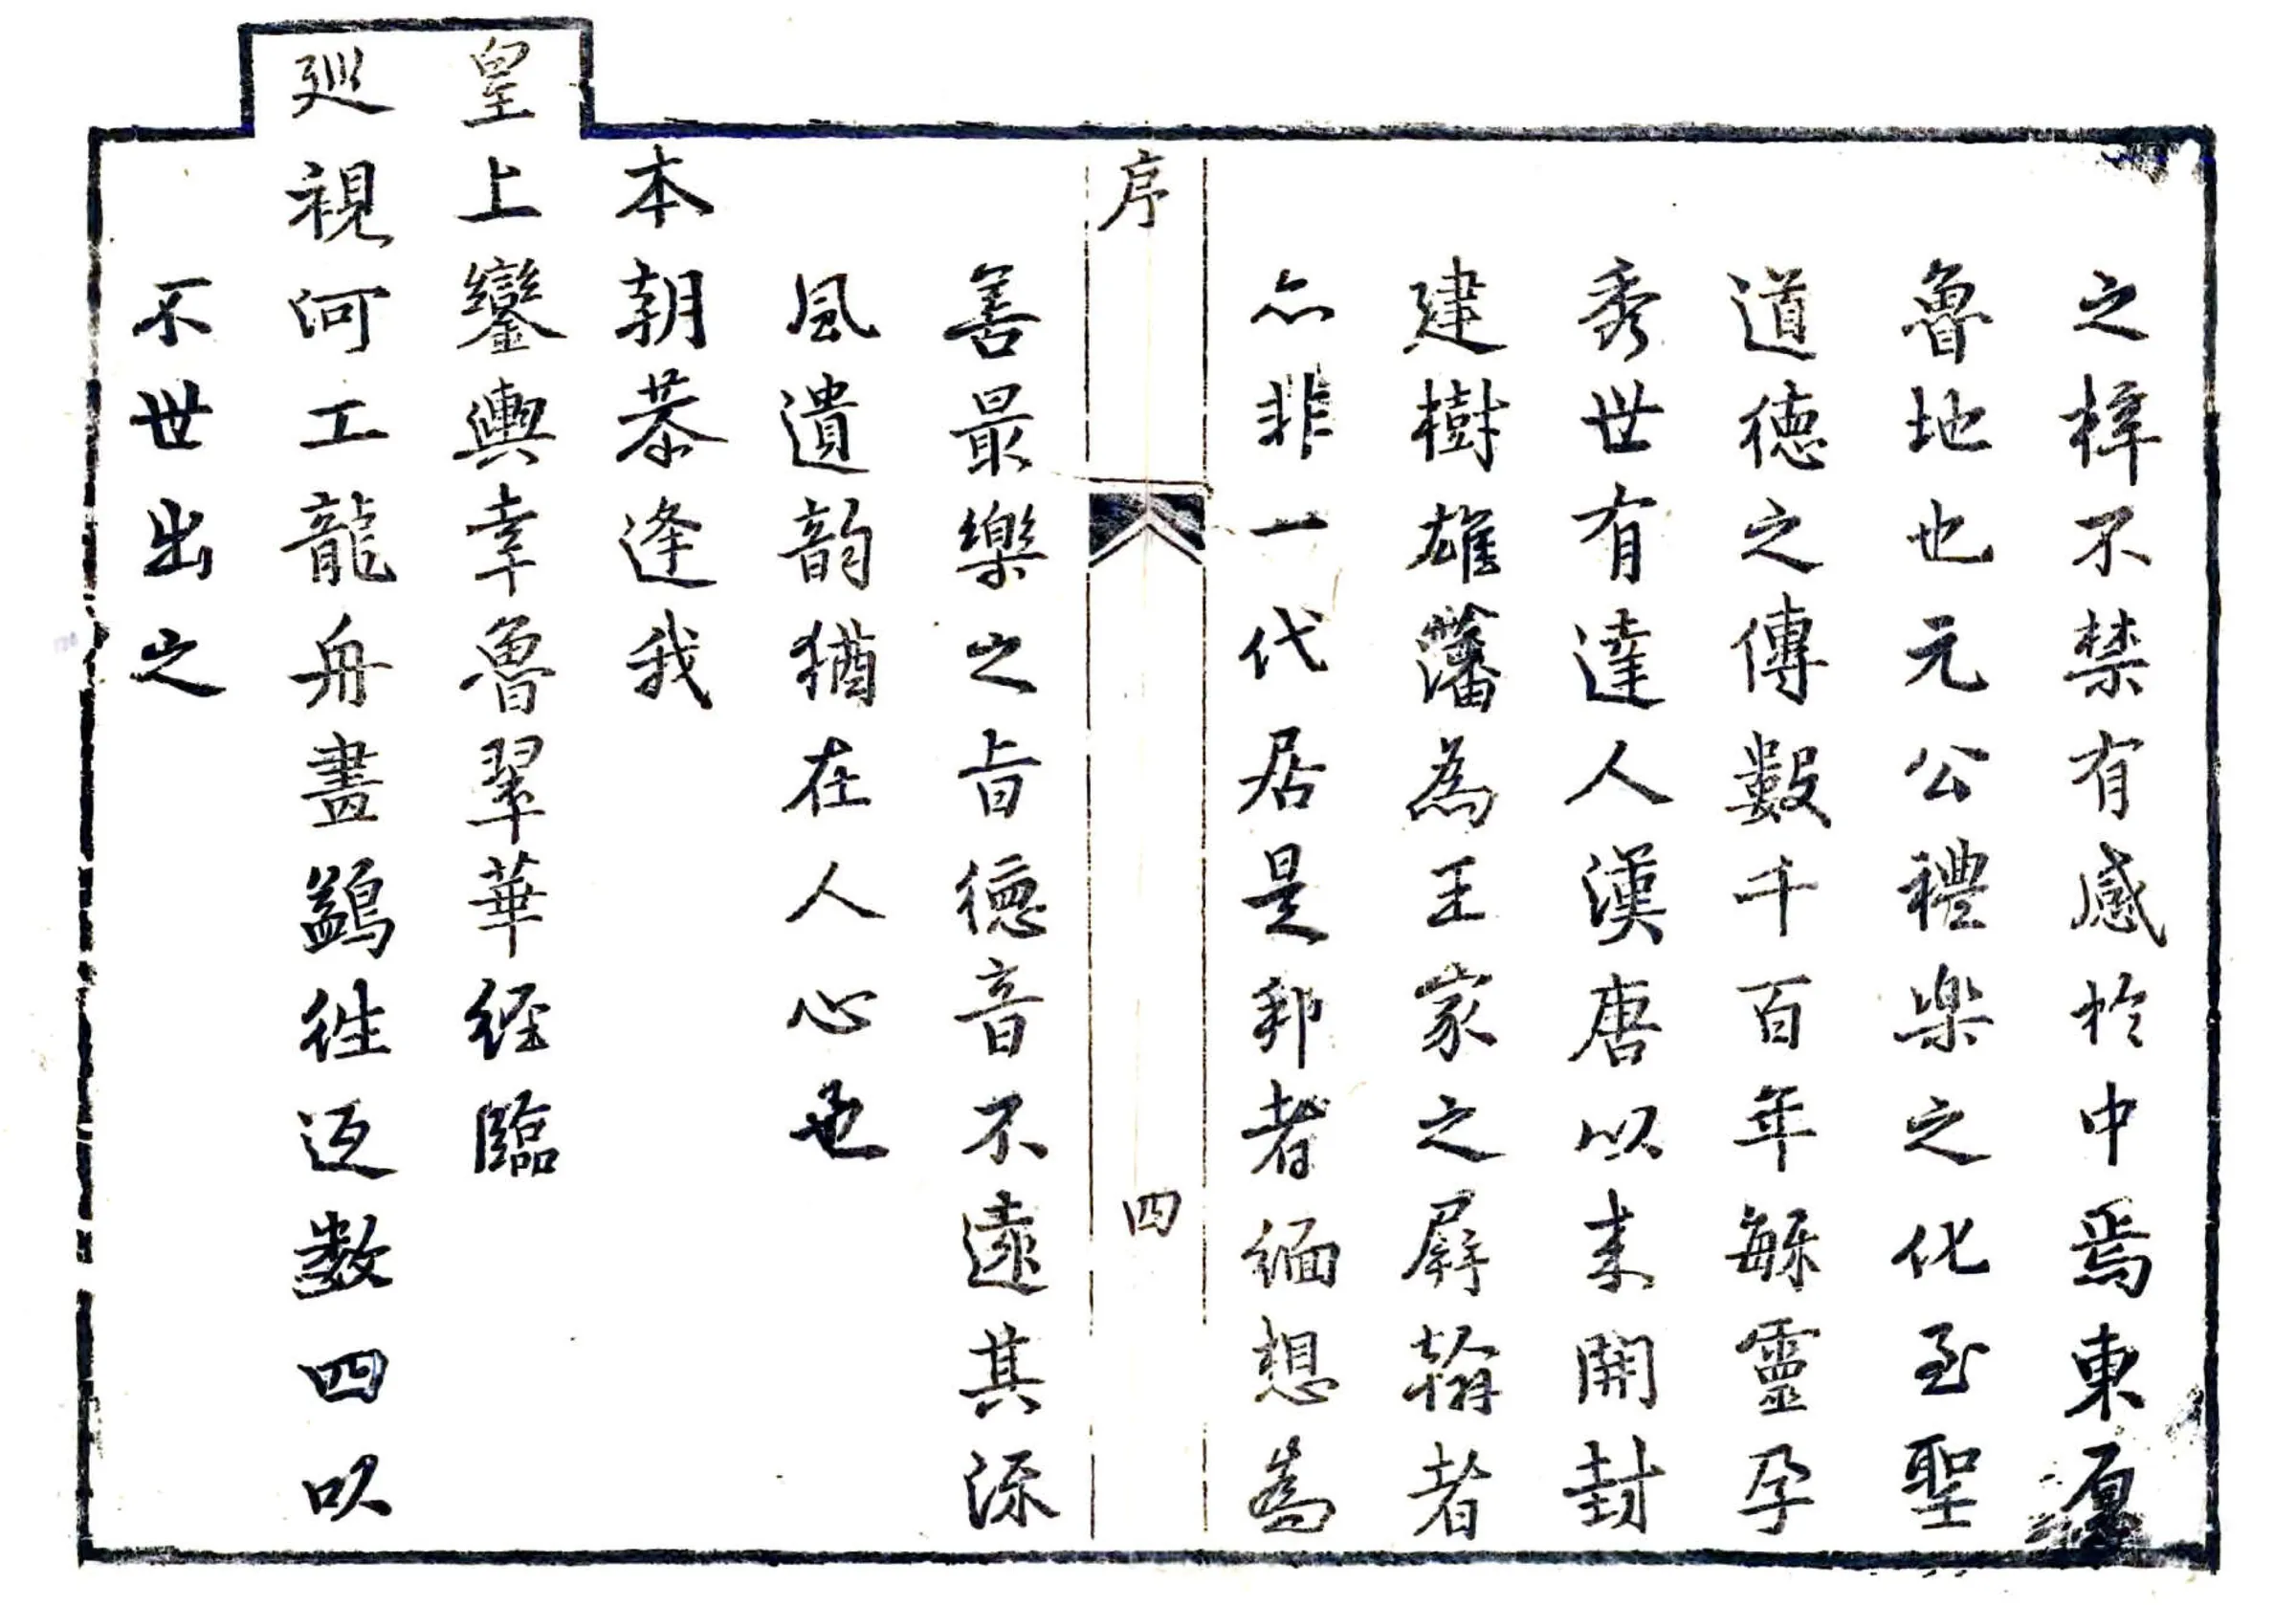 之梓不禁有感於中焉東原
魯地也元公禮樂之化至聖
道德之傳數千百年毓靈孕
秀世有達人漢唐以来開封
建樹雄藩為王家之屏翰者
亦非一代居是邦者緬想為
序
四
善最樂之旨德音不遠其流
風遺韵猶在人心也
本朝恭逢我
皇上鑾輿幸魯翠華經臨
廵視河工龍舟畫鷁徃返数四以
不世出之